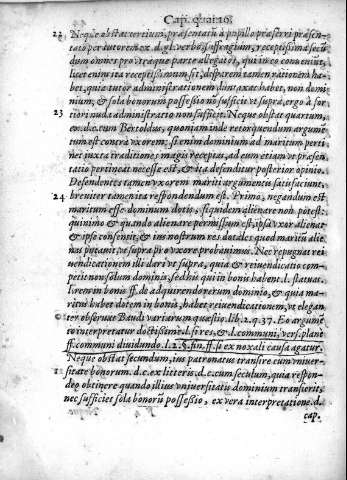 Cap. quai. 16.
22 Neque obstat tertium, præsentatũ à pupillo præferri præsen-
tato per tutorem ex d. gl. verbo, suffragium, receptissima secũ
dum omnes pro vtraque parte allegatos, qui in eo conueniũt,
licet enim ita receptissimum sit, desperem tamen rationem ha-
bet, quia tutor administrationem duntaxat habet, non domi-
nium, & sola bonorum possessio nõ sufficit vt supra, ergo à for
23 tiori nuda administratio non sufficit. Neque obstat quartum,
eiu. d.c. cum Bertoldus, quoniam inde retorquendum argumẽ
tum est contra vxorem: si enim dominium ad maritum perti
net iuxta traditiones magis receptas, ad eum etiam vt præsen-
tatio pertineat necesse est, & ita defenditur posterior opinio.
Defendentes tamen vxorem mariti argumentis satisfaciunt,
24 breuiter tamen ita respondendum est. Primo, negandum est
maritum esse dominum dotis, siquidem alienare non potest:
quinimo & quando alienare permissum est, ipsa vxor alienat
& ipsa consensit, & ius nostrum res dotales quod maritũ alie-
nas putauit, vt supra pro vxore probauimus. Nec repugnat rei
uendicationem illi dari vt supra, quia & reiuendicatio com-
petit non solum domino, sed his qui in bonis habent l. statuas.
l. rem in bonis ff. de adquirendo rerum dominio, & quia ma-
ritus habet dotem in bonis, habet reiuendicationem, vt elegan
ter obseruat Baudi variarum quæstiõ. lib. 2. q. 37. Eo argumẽ
to interpretatur doctissime l. si res, & l. communi, vers. plane
ff. communi diuidundo. l. 2. §. fin. ff. si ex noxali causa agatur.
Neque obstat secundum, ius patronatus transire cum vniuer-
sitate bonorum. d.c. ex litteris. d.c. cum seculum, quia respon-
deo obtinere quando illius vniuersitatis dominium transierit,
nec sufficiet sola bonorũ possessio, ex vera interpretatione. d.
cap.